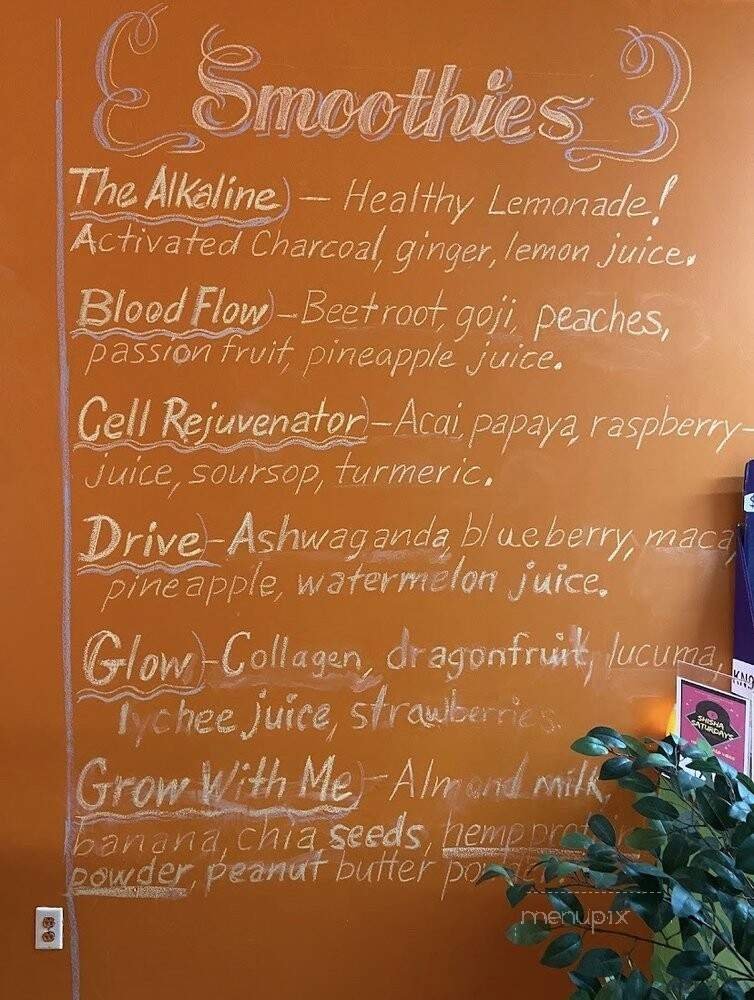 Smoothies
The Alkaline) — Healthy Lemonade!
Activated Charcoal, ginger, lemon juice.
Blood Flow) - Beetroot, goji, peaches,
passion fruit, pineapple juice.
Cell Rejuvenator) - Acai, papaya, raspberry-
juice, soursop, turmeric.
Drive) - Ashwaganda, blueberry, maca,
pineapple, watermelon juice.
Glow) - Collagen, dragonfruit, lucuma,
lychee juice, strawberries.
Grow With Me) - Almond milk,
banana, chia seeds, hemp protein
powder, peanut butter powder
KNO
SHISHA
SATURDAYS
menupix